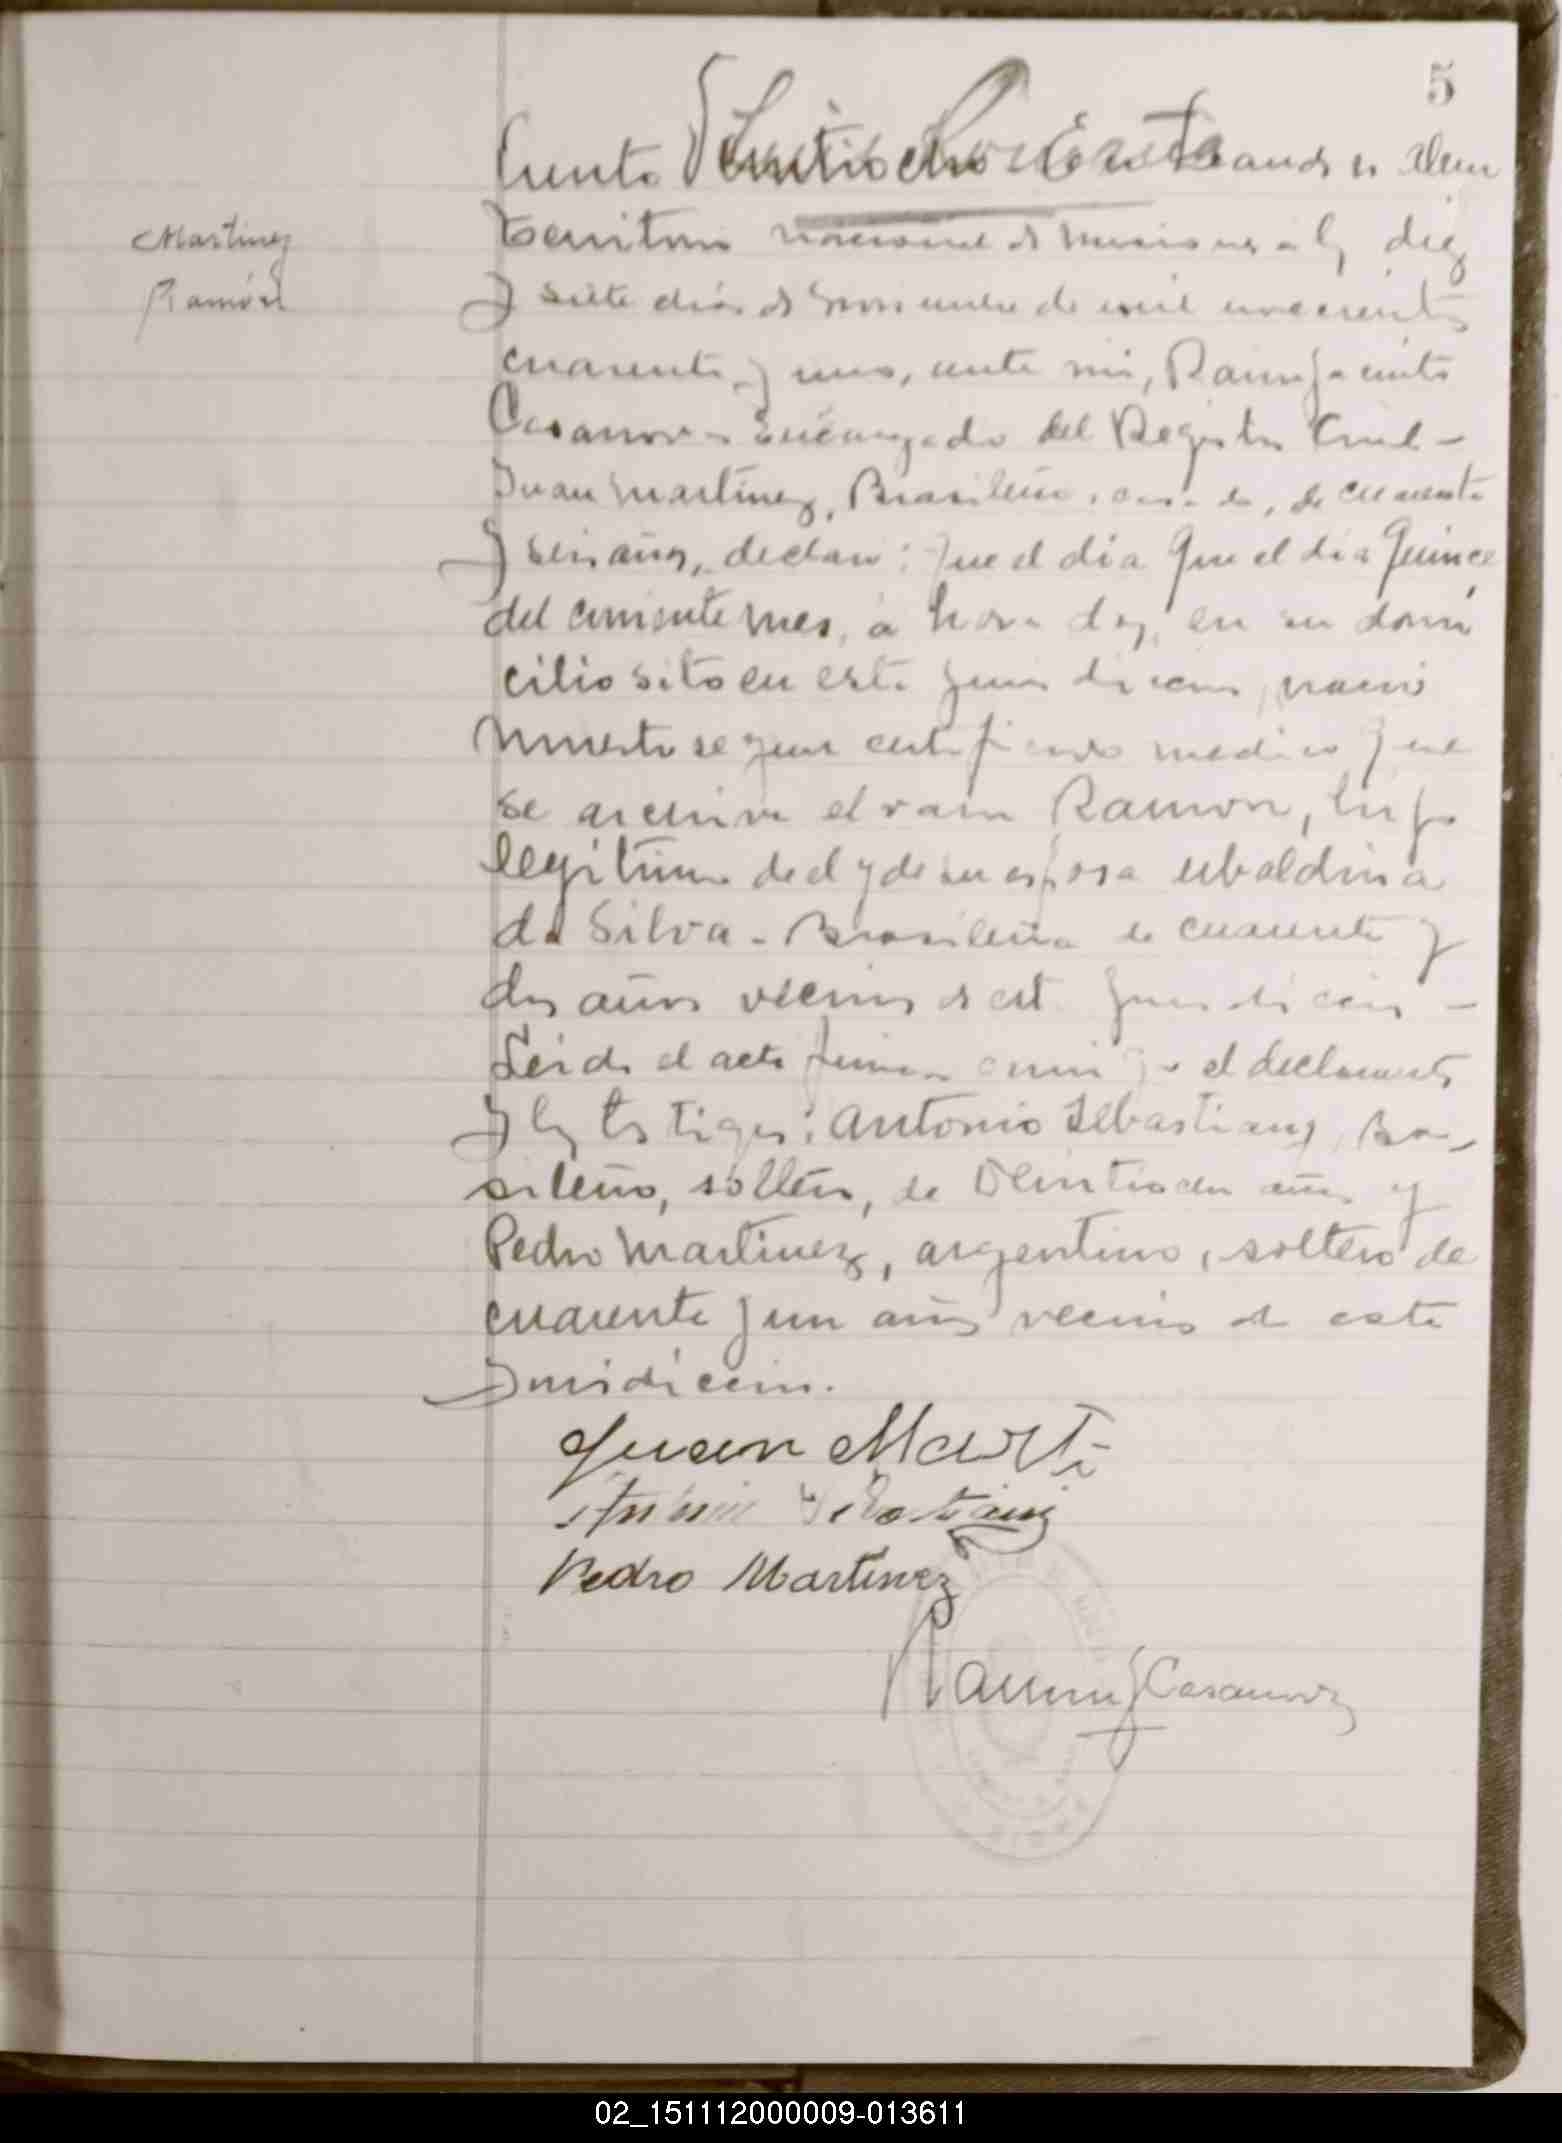 5
Ciento Veintiocho En Leandro N. Alem
Martinez
Ramón
territorio nacional de misiones a los diez
y siete dias de Noviembre de mil novecientos
cuarenta y uno, ante mi, Ramon Jacinto
Casanova Encargado del Registro Civil -
Juan Martinez, Brasileño, casado, de cuarenta
y seis años, declaró: que el dia que el dia quince
del corriente mes, a hora diez, en su domi
cilio sito en esta jurisdiccion, nació
muerto segun certificado medico que
se archiva el varon Ramon, hijo
legitimo de el y de su esposa ubaldina
da Silva - Brasileña de cuarenta y
dos años vecinos de esta jurisdiccion -
Leida el acta firman conmigo el declarante
y los testigos: Antonio Sebastiany, Bra-
sileño, soltero, de Veintiocho años y
Pedro Martinez, argentino, soltero de
cuarenta y un años vecinos de esta
jurisdiccion.
Juan Marti
Antonio Sebastiany
Pedro Martinez
Ramon J Casanova
02_151112000009-013611